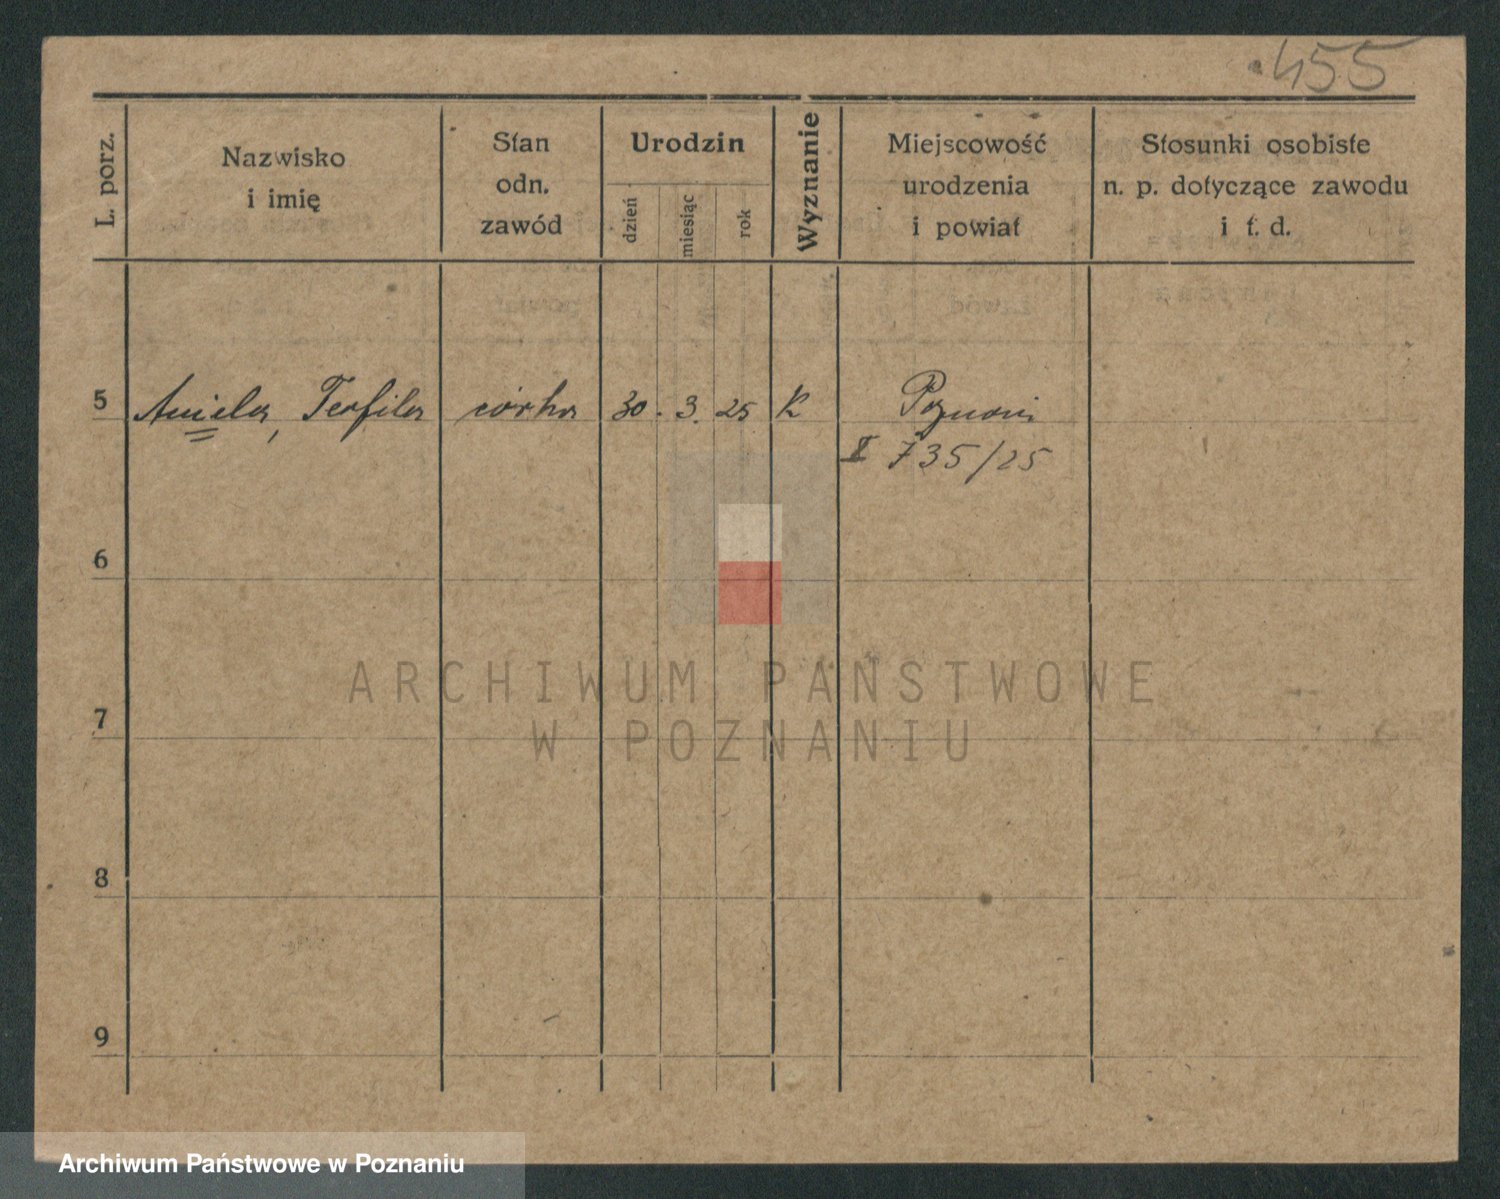 455
L. porz.
Nazwisko
i imię
Stan
odn.
zawód
Urodzin
dzień
miesiąc
rok
Wyznanie
Miejscowość
urodzenia
i powiat
Stosunki osobiste
n. p. dotyczące zawodu
i t. d.
5 Aniela, Teofila córka 30. 3. 25 K Poznań
II 735/25
6
7
8
9
ARCHIWUM PAŃSTWOWE
W POZNANIU
Archiwum Państwowe w Poznaniu